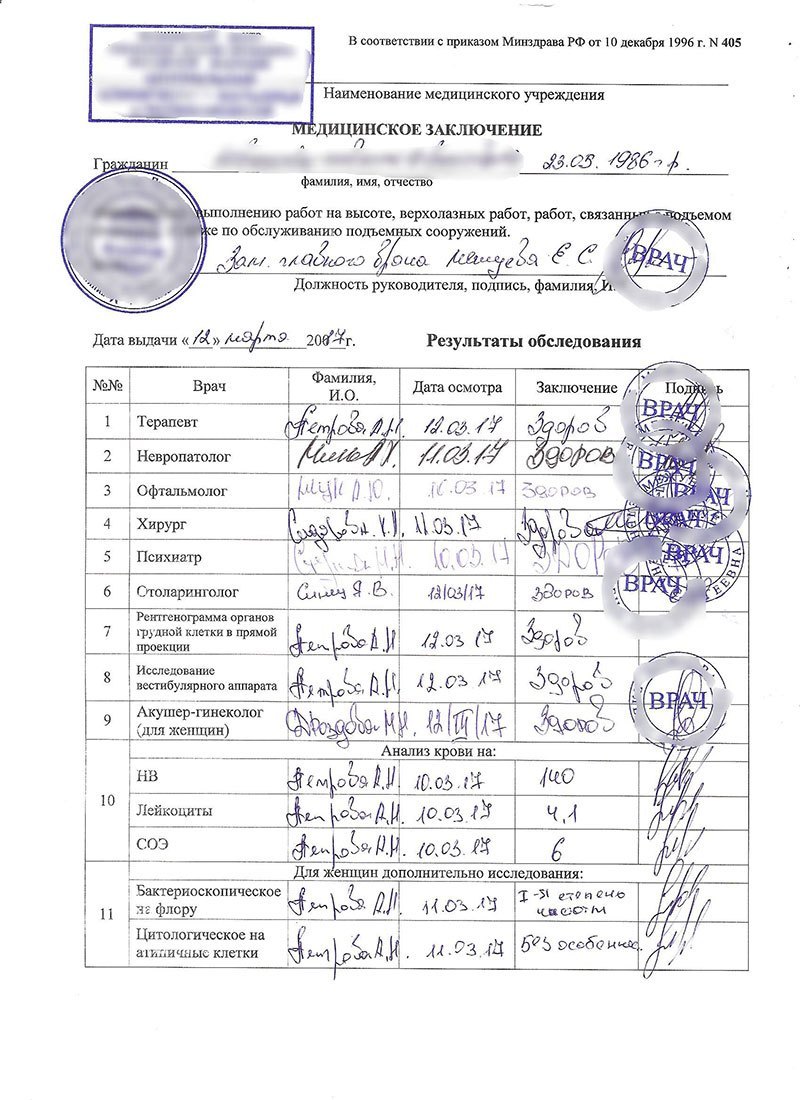 В соответствии с приказом Минздрава РФ от 10 декабря 1996 г. N 405
Наименование медицинского учреждения
МЕДИЦИНСКОЕ ЗАКЛЮЧЕНИЕ
Гражданин 1986 г.р.
фамилия, имя, отчество
выполнению работ на высоте, верхолазных работ, работ, связанных с подъемом
же по обслуживанию подъемных сооружений.
Зам. главного врача Е. С.
ВРАЧ
Должность руководителя, подпись, фамилия, И.
Дата выдачи «12» марта 2017г. Результаты обследования
№№ Врач Фамилия, И.О. Дата осмотра Заключение Подпись
1 Терапевт Петрова А.И. 12.03.17 Здоров ВРАЧ
2 Невропатолог 11.03.17 Здоров ВРАЧ
3 Офтальмолог Мук А.Ю. 03 17 Здоров ВРАЧ
4 Хирург 11.03.17 Здоров ВРАЧ
5 Психиатр 10.03.17 ВРАЧ
6 Столаринголог Синец Я.В. 12/03/17 Здоров ВРАЧ
7 Рентгенограмма органов грудной клетки в прямой проекции Петрова А.И 12.03 17 Здоров
8 Исследование вестибулярного аппарата Петрова А.И. 12.03 17 Здоров ВРАЧ
9 Акушер-гинеколог (для женщин) Дроздова 12/III/17 Здоров
10 Анализ крови на:
НВ Петрова А.И. 10.03.17 140
Лейкоциты Петрова А.И. 10.03.17 4,1
СОЭ Петрова А.И. 10.03.17 6
11 Для женщин дополнительно исследования:
Бактериоскопическое на флору Петрова А.И. 11.03.17 I-я степень чистоты
Цитологическое на атипичные клетки Петрова А.И. 11.03.17 Без особеннос.